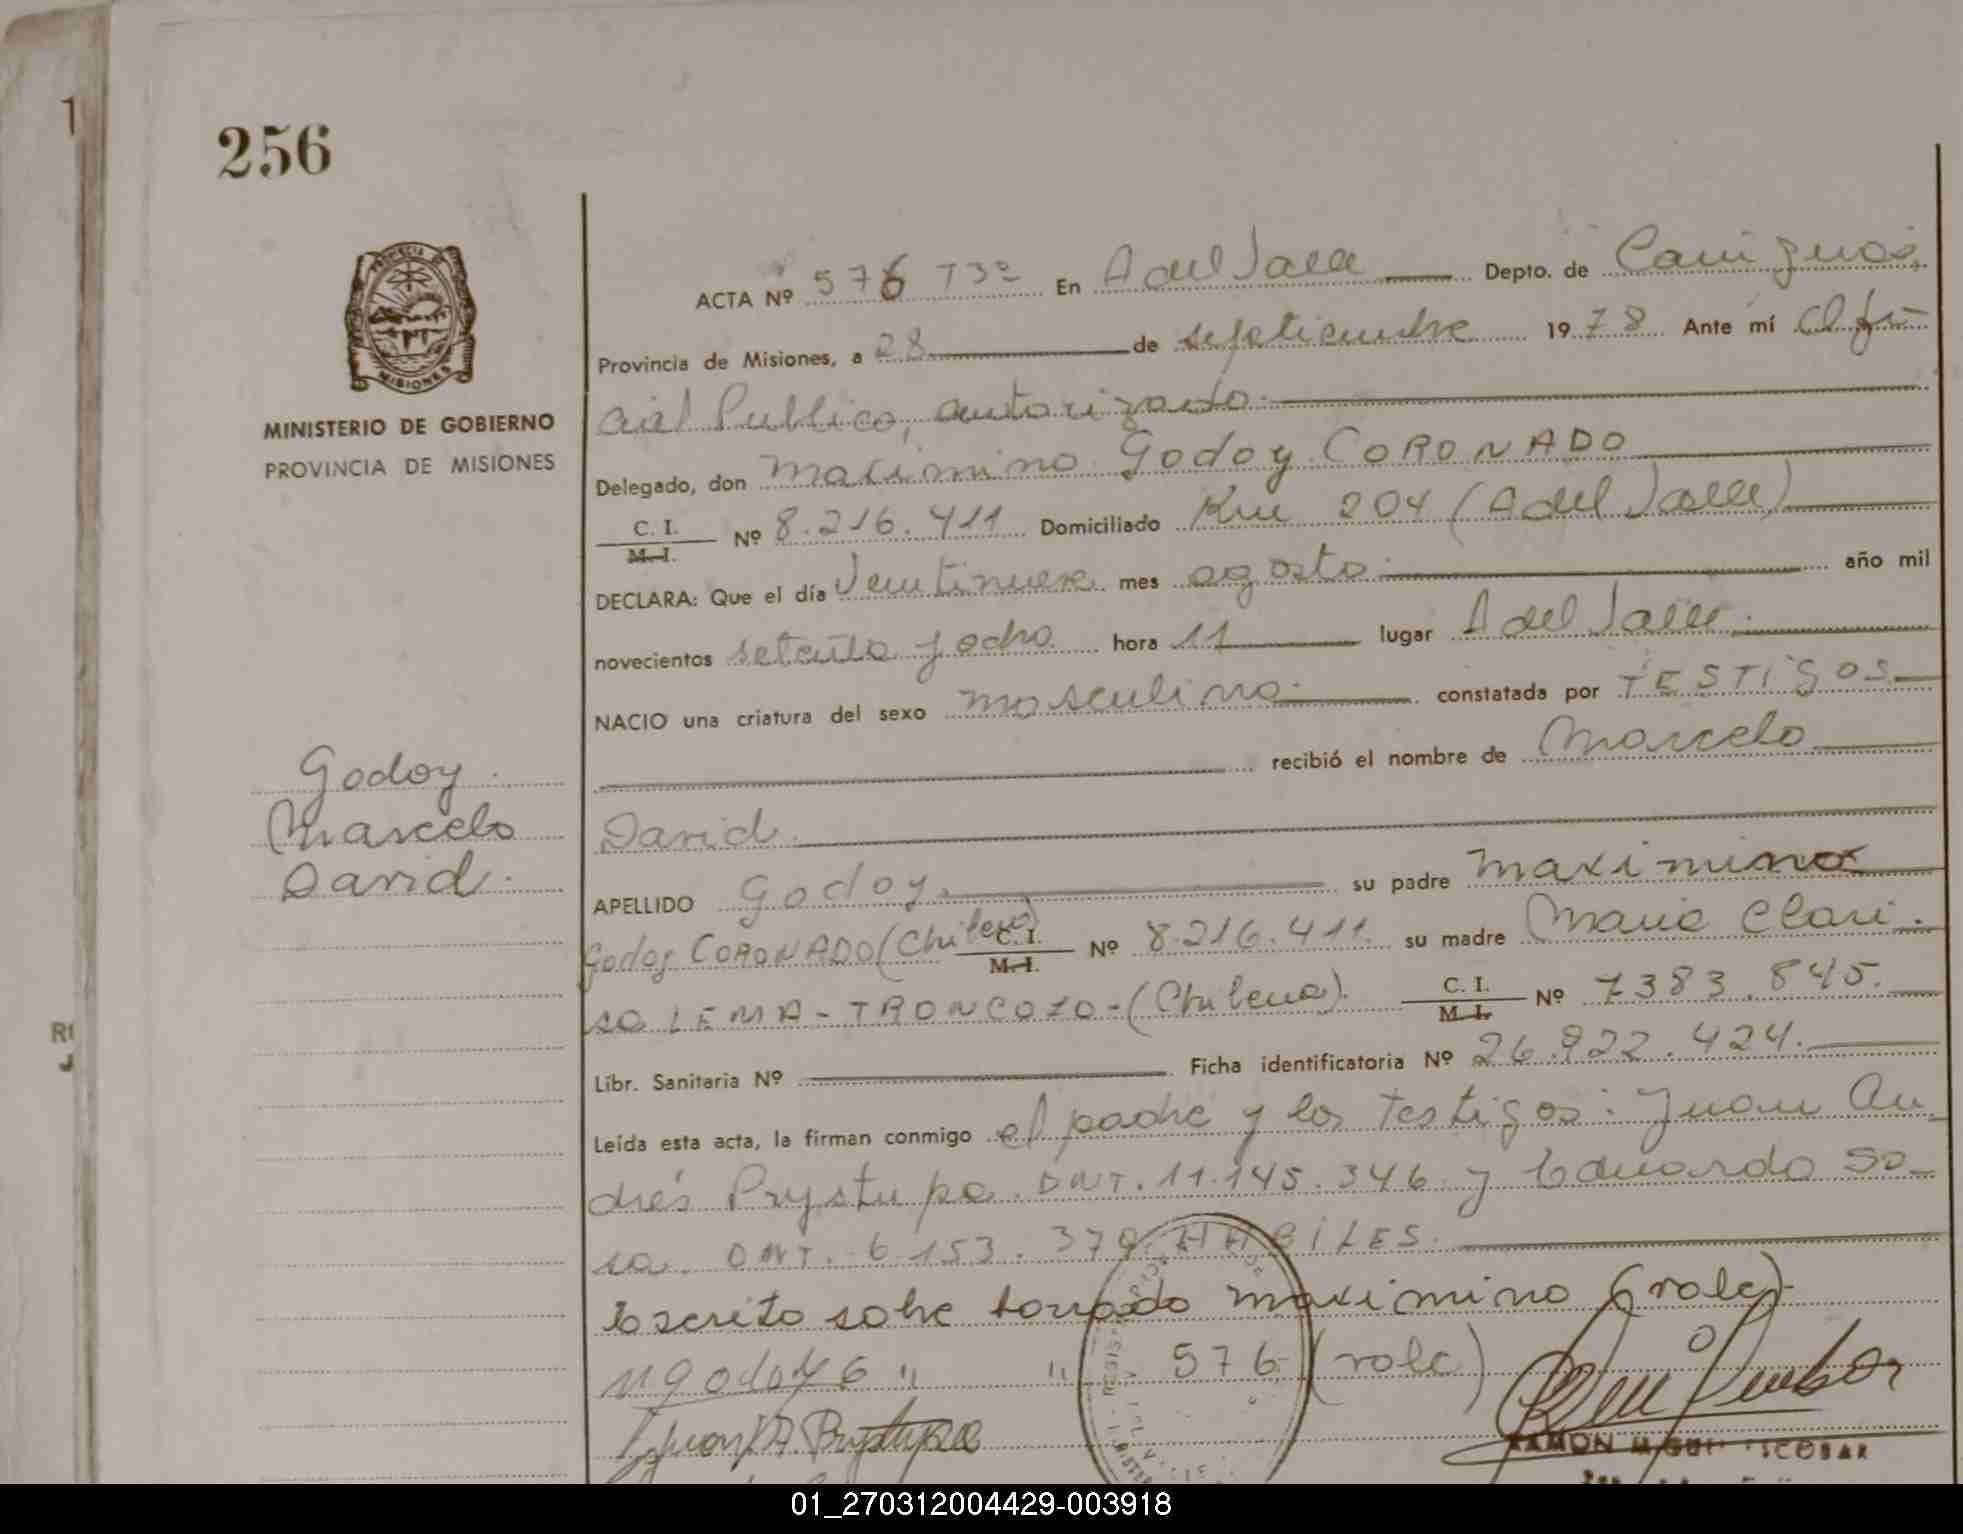 256
ACTA Nº 576 T3º En A del Valle Depto. de Cainguás
Provincia de Misiones, a 28 de septiembre 1978 Ante mí Ofi-
cial Publico, autorizado.
MINISTERIO DE GOBIERNO
PROVINCIA DE MISIONES
Delegado, don Maximino Godoy CORONADO
C. I. M. I. Nº 8.216.411 Domiciliado Km 204 (A del Valle)
DECLARA: Que el día Veintinueve mes agosto año mil
novecientos setenta y ocho hora 11 lugar A del Valle.
NACIO una criatura del sexo masculino. constatada por TESTIGOS
recibió el nombre de Marcelo
David.
Godoy.
Marcelo
David.
APELLIDO Godoy. su padre Maximino
Godoy CORONADO (Chileno) C. I. M. I. Nº 8.216.411. su madre Maria Clari.
sa LEMA - TRONCOZO - (Chilena). C. I. M. I. Nº 7383.845.
Libr. Sanitaria Nº Ficha identificatoria Nº 26.922.424.
Leída esta acta, la firman conmigo el padre y los testigos: Juan An-
drés Prystupa. DNI. 11.145.346 y Eduardo So-
sa. DNI. 6.153.379. HABILES.
Escrito sobre borrado Maximino (vale)-
6 " " 576 (vale)
Juan A. Prystupa
RAMON MIGUEL ESCOBAR
01_270312004429-003918